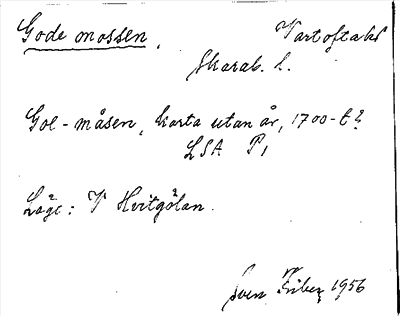 Gode mossen, Vartofta hd
Skarab. l.
God-måsen, karta utan år, 1700-t?
LSA P1
Läge: V Hvitgölan.
Sven Friberg 1956